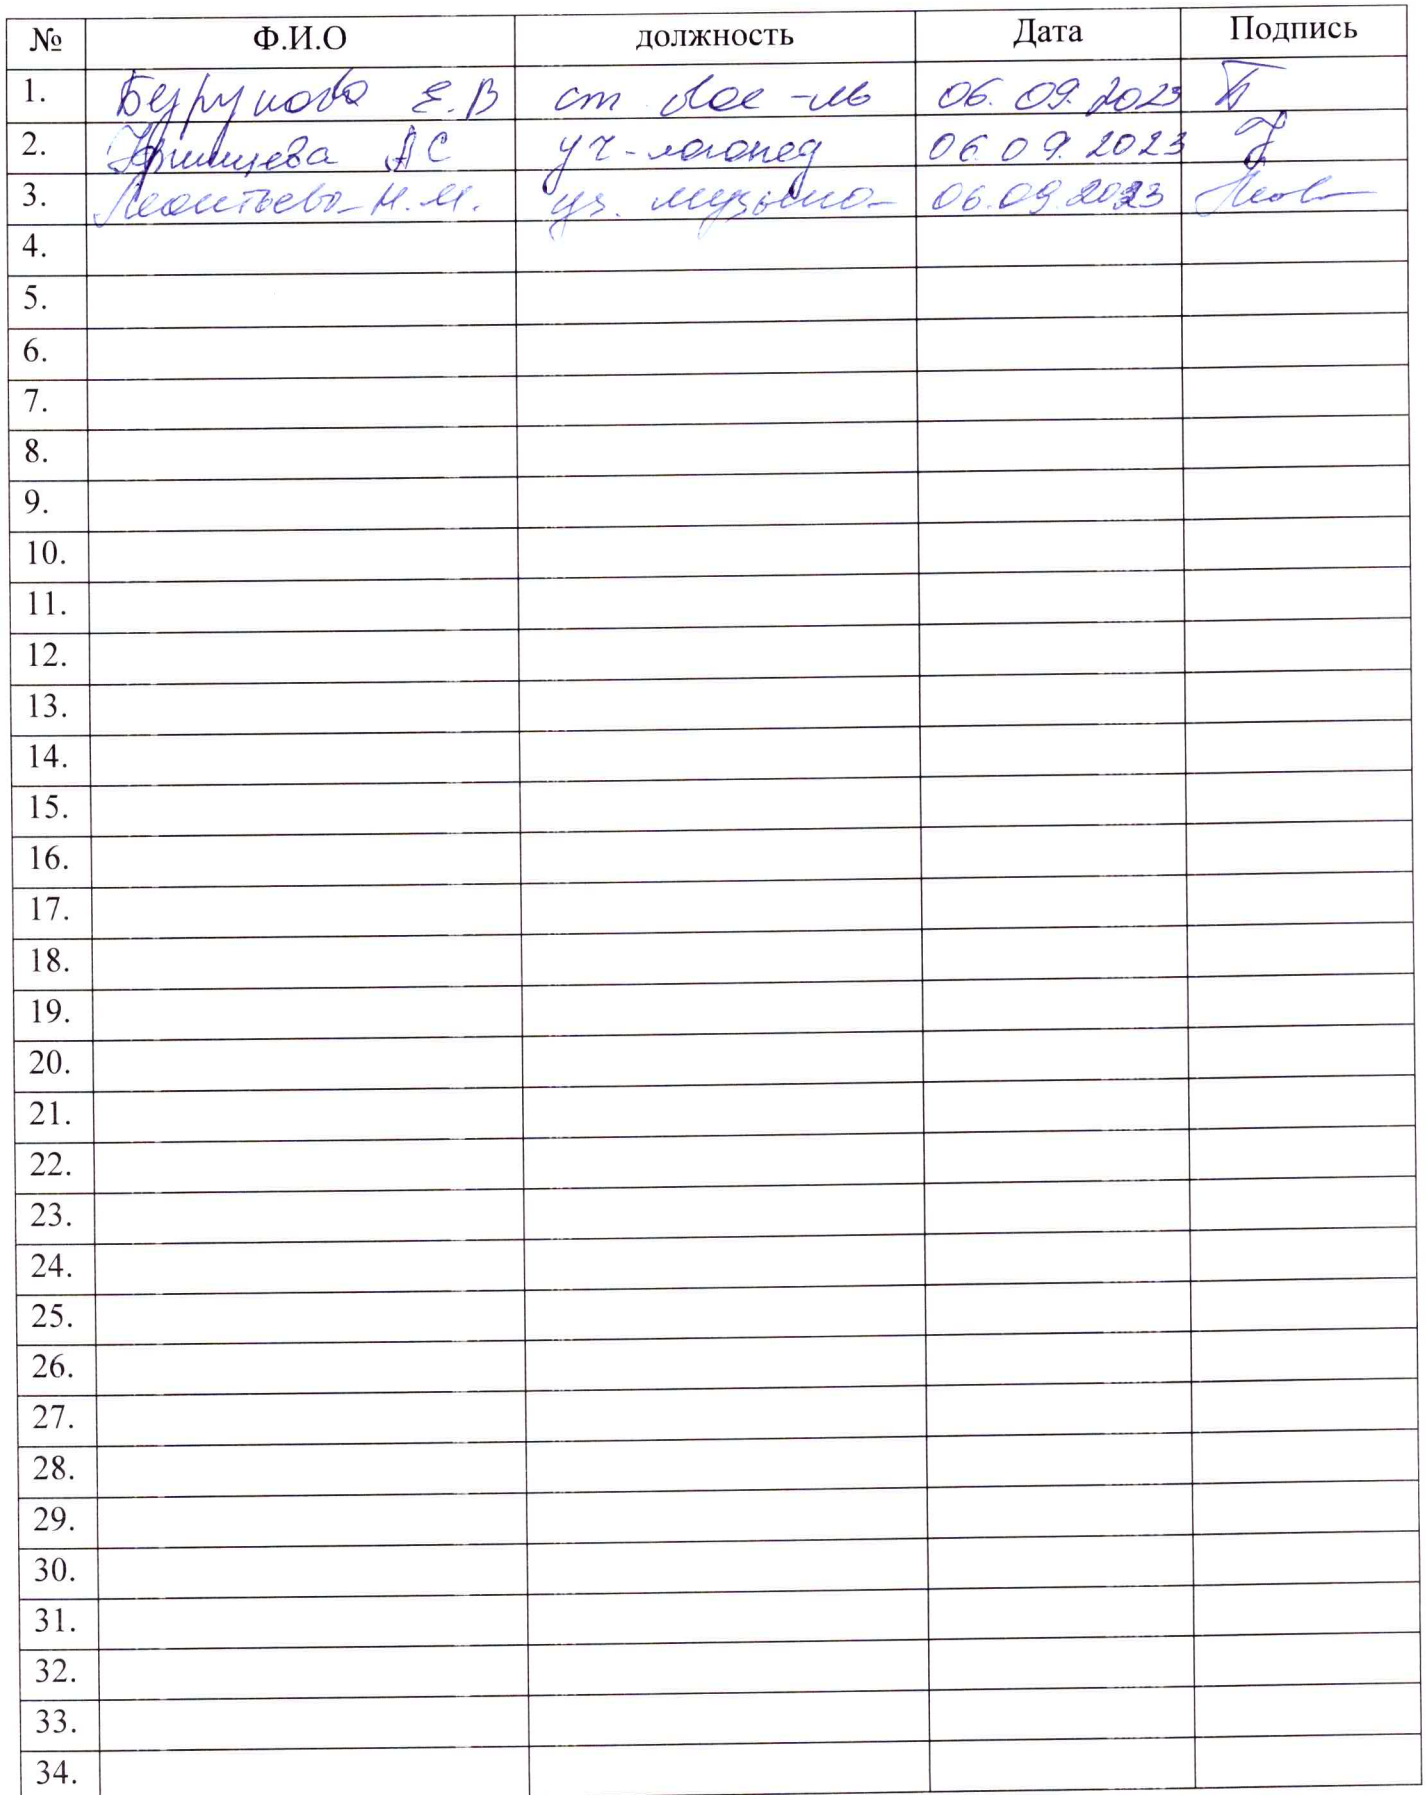 № Ф.И.О должность Дата Подпись
1. Е.В ст вос-ль 06.09.2023
2. АС уч-логопед 06.09.2023
3. Леонтьева Н.М. уз. музыка 06.09.2023
4.
5.
6.
7.
8.
9.
10.
11.
12.
13.
14.
15.
16.
17.
18.
19.
20.
21.
22.
23.
24.
25.
26.
27.
28.
29.
30.
31.
32.
33.
34.